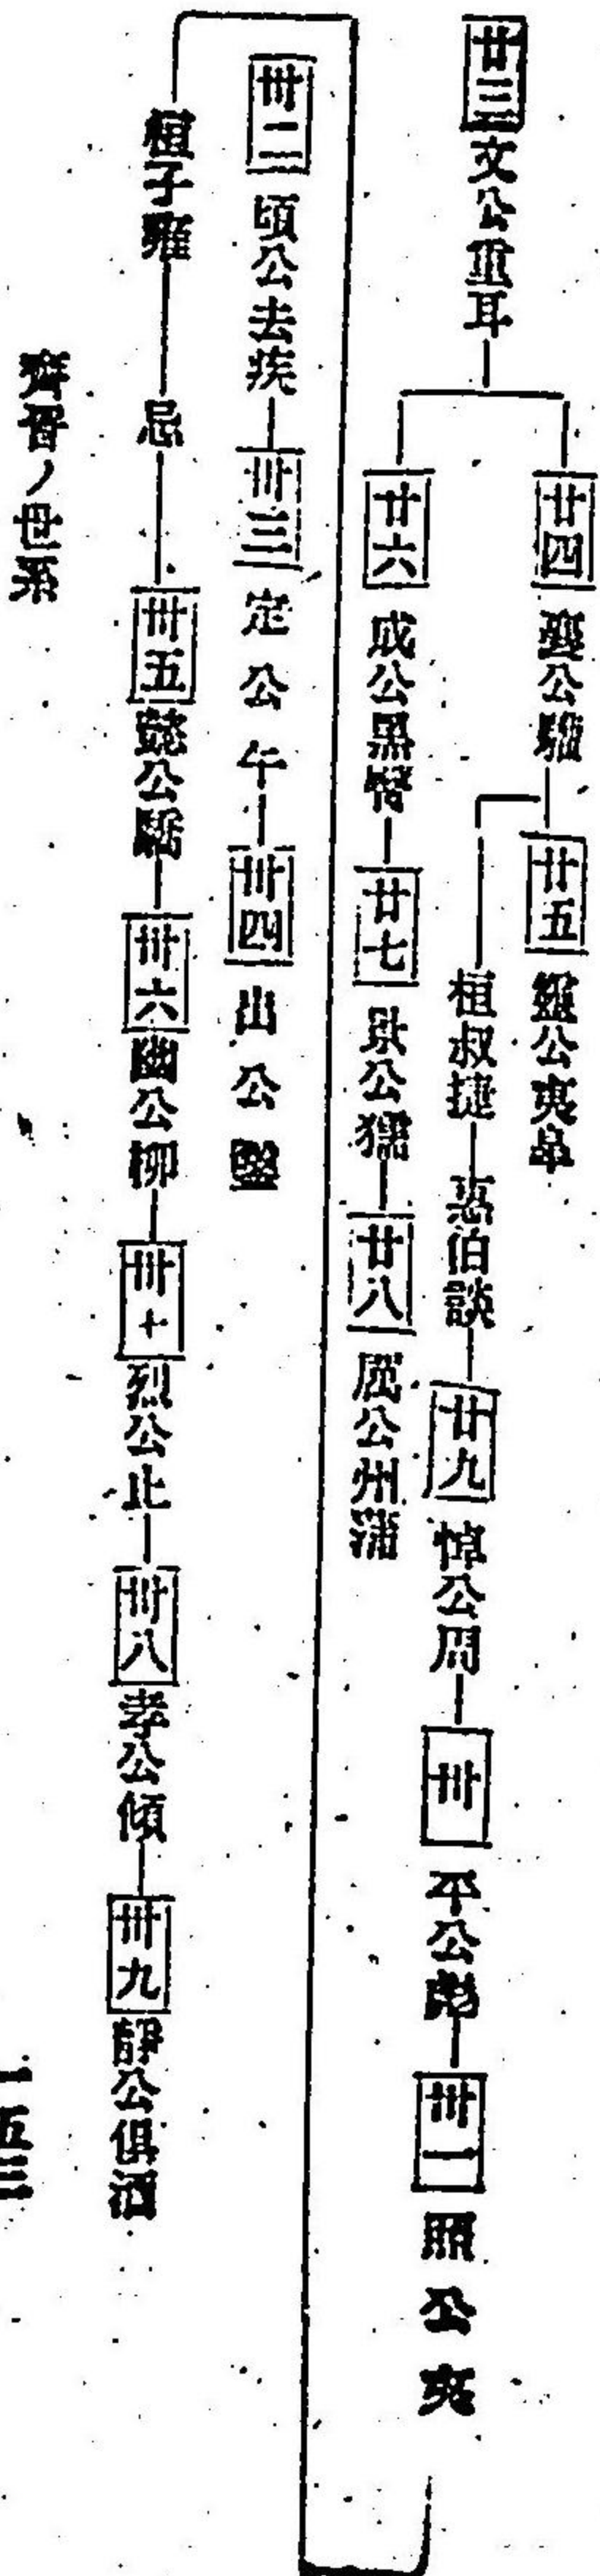 廿三 文公重耳
廿四 襄公驩
廿五 靈公夷皐
桓叔捷 惠伯談 廿九 悼公周 卅 平公彪 卅一 照公夷
廿六 成公黑臀 廿七 景公獳 廿八 厲公州蒲
卅二 頃公去疾 卅三 定公午 卅四 出公鑿
桓子雍 忌 卅五 懿公驕 卅六 幽公柳 卅十 烈公止 卅八 孝公傾 卅九 靜公俱酒
齊晉ノ世系
一五三